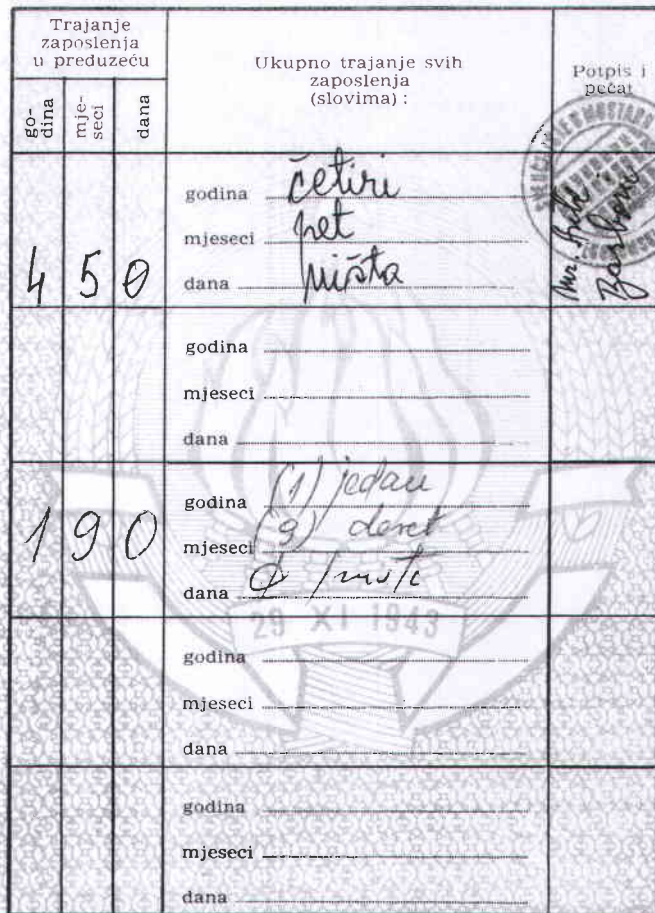 Trajanje
zaposlenja
u preduzeću
go-
dina
mje-
seci
dana
Ukupno trajanje svih
zaposlenja
(slovima) :
Potpis i
pečat
4 5 0
godina četiri
mjeseci pet
dana ništa
godina
mjeseci
dana
1 9 0
godina (1) jedan
mjeseci (9) devet
dana 0
29 XI 1943
godina
mjeseci
dana
godina
mjeseci
dana